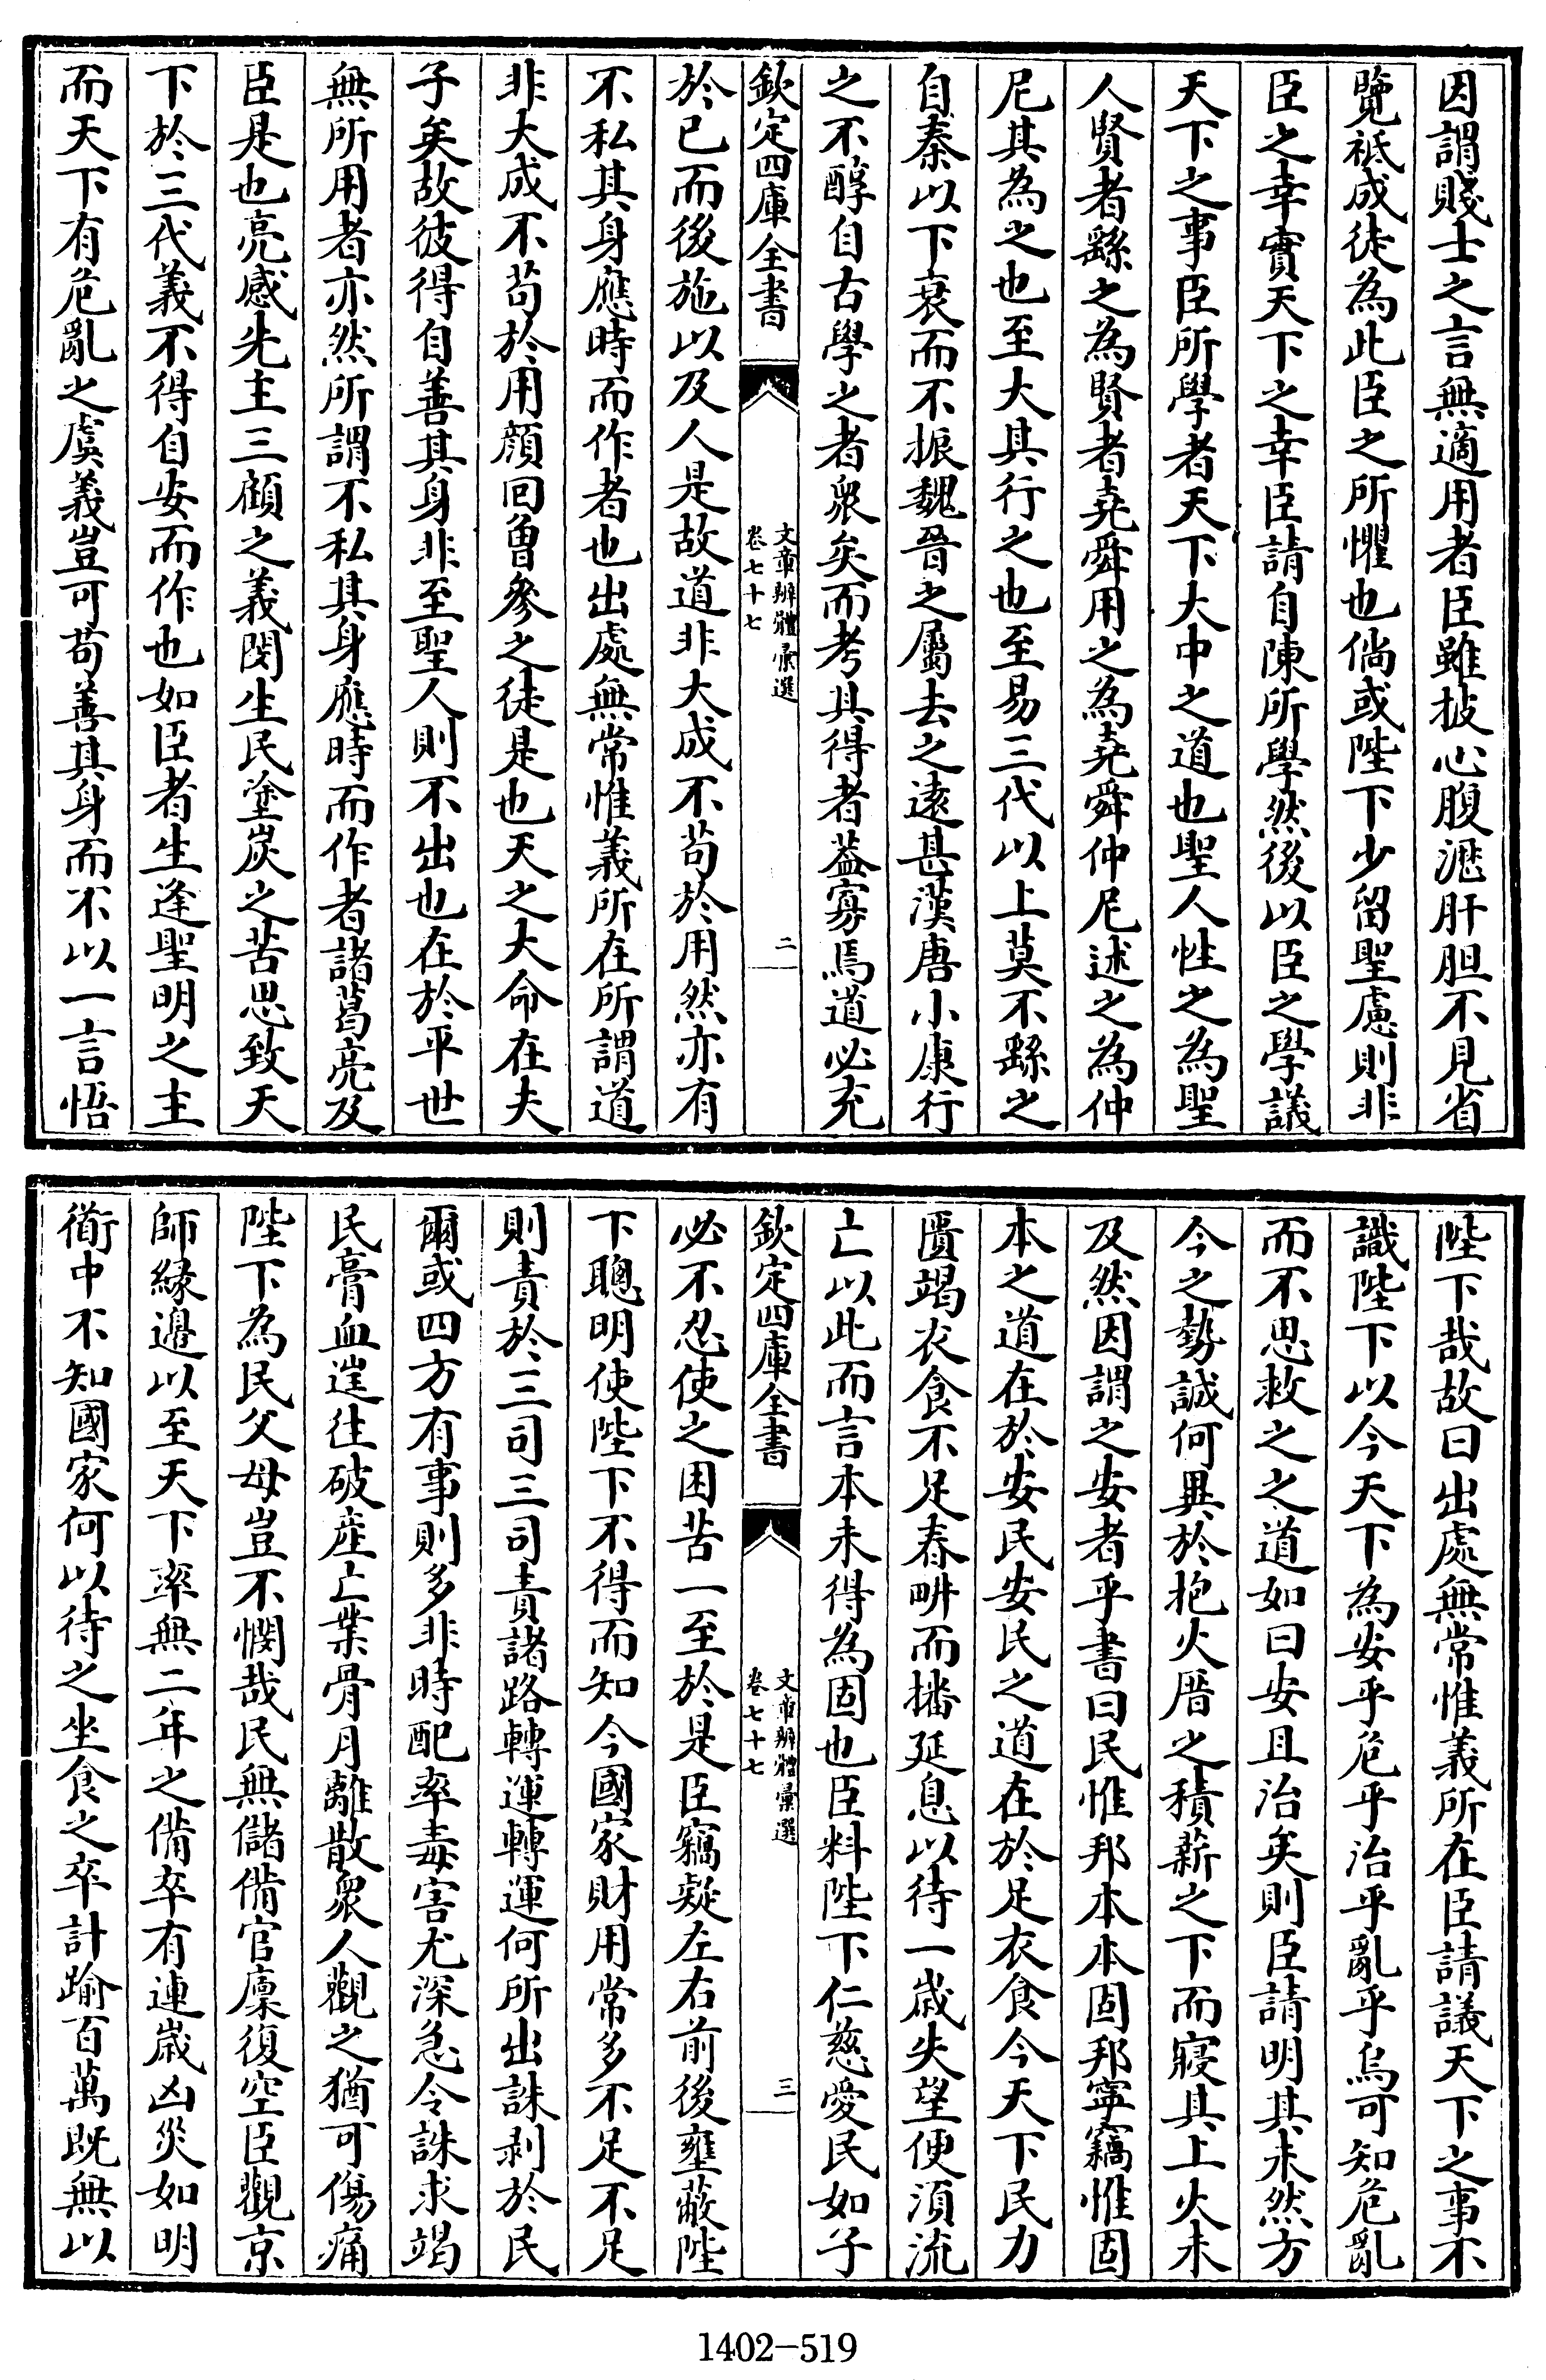 因謂賤士之言無適用者臣雖披心腹瀝肝胆不見省
覽祗成徒為此臣之所懼也倘或陛下少留聖慮則非
臣之幸實天下之幸臣請自陳所學然後以臣之學議
天下之事臣所學者天下大中之道也聖人性之為聖
人賢者繇之為賢者堯舜用之為堯舜仲尼述之為仲
尼其為之也至大其行之也至易三代以上莫不繇之
自秦以下衰而不振魏晉之屬去之遠甚漢唐小康行
之不醇自古學之者衆矣而考其得者葢寡焉道必充
欽定四庫全書
文章辨體彙選
卷七十七
二
於已而後施以及人是故道非大成不苟於用然亦有
不私其身應時而作者也出處無常惟義所在所謂道
非大成不苟於用顔回曾參之徒是也天之大命在夫
子矣故彼得自善其身非至聖人則不出也在於平世
無所用者亦然所謂不私其身應時而作者諸葛亮及
臣是也亮感先主三顧之義閔生民塗炭之苦思致天
下於三代義不得自安而作也如臣者生逢聖明之主
而天下有危亂之虞義豈可苟善其身而不以一言悟
陛下哉故曰出處無常惟義所在臣請議天下之事不
識陛下以今天下為安乎危乎治乎亂乎烏可知危亂
而不思救之之道如曰安且治矣則臣請明其未然方
今之勢誠何異於抱火厝之積薪之下而寢其上火未
及然因謂之安者乎書曰民惟邦本本固邦寧竊惟固
本之道在於安民安民之道在於足衣食今天下民力
匱竭衣食不足春畊而播延息以待一歲失望便須流
亡以此而言本未得為固也臣料陛下仁慈愛民如子
欽定四庫全書
文章辨體彙選
卷七十七
三
必不忍使之困苦一至於是臣竊疑左右前後壅蔽陛
下聰明使陛下不得而知今國家財用常多不足不足
則責於三司三司責諸路轉運轉運何所出誅剥於民
爾或四方有事則多非時配率毒害尤深急令誅求竭
民膏血逞往破産亡業骨月離散衆人觀之猶可傷痛
陛下為民父母豈不憫哉民無儲備官廩復空臣觀京
師緣邊以至天下率無二年之備卒有連歲凶災如明
衟中不知國家何以待之坐食之卒計踰百萬既無以